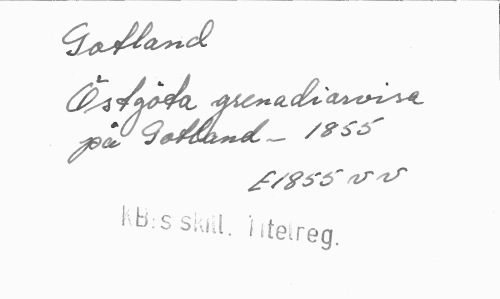 Gotland
Östgöta grenadiarvisa
på Gotland – 1855
E1855 v v
KB:s skill. Titelreg.